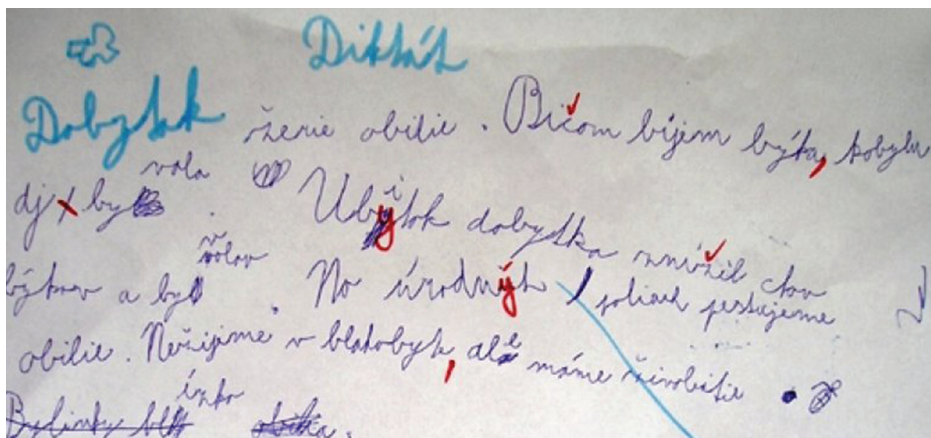 Diktát
Dobytok žerie obilie. Bičom bijem býka, kobylu
aj by vola.
Ubytok dobytka znížil chov
býkov a volov. Na úrodných poliach pestujeme
obilie. Nežijeme v blahobyt, ale máme živobitie.
Bylinky